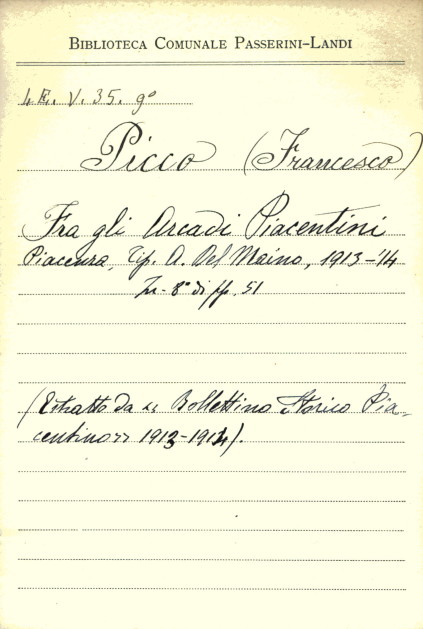 BIBLIOTECA COMUNALE PASSERINI-LANDI
4E. V. 35. 9º
Picco (Francesco)
Fra gli Arcadi Piacentini
Piacenza, Tip. A. Del Maino, 1913-'14
In-8º di pp. 51
(Estratto da « Bollettino Storico Pia-
centino » 1913-1914).